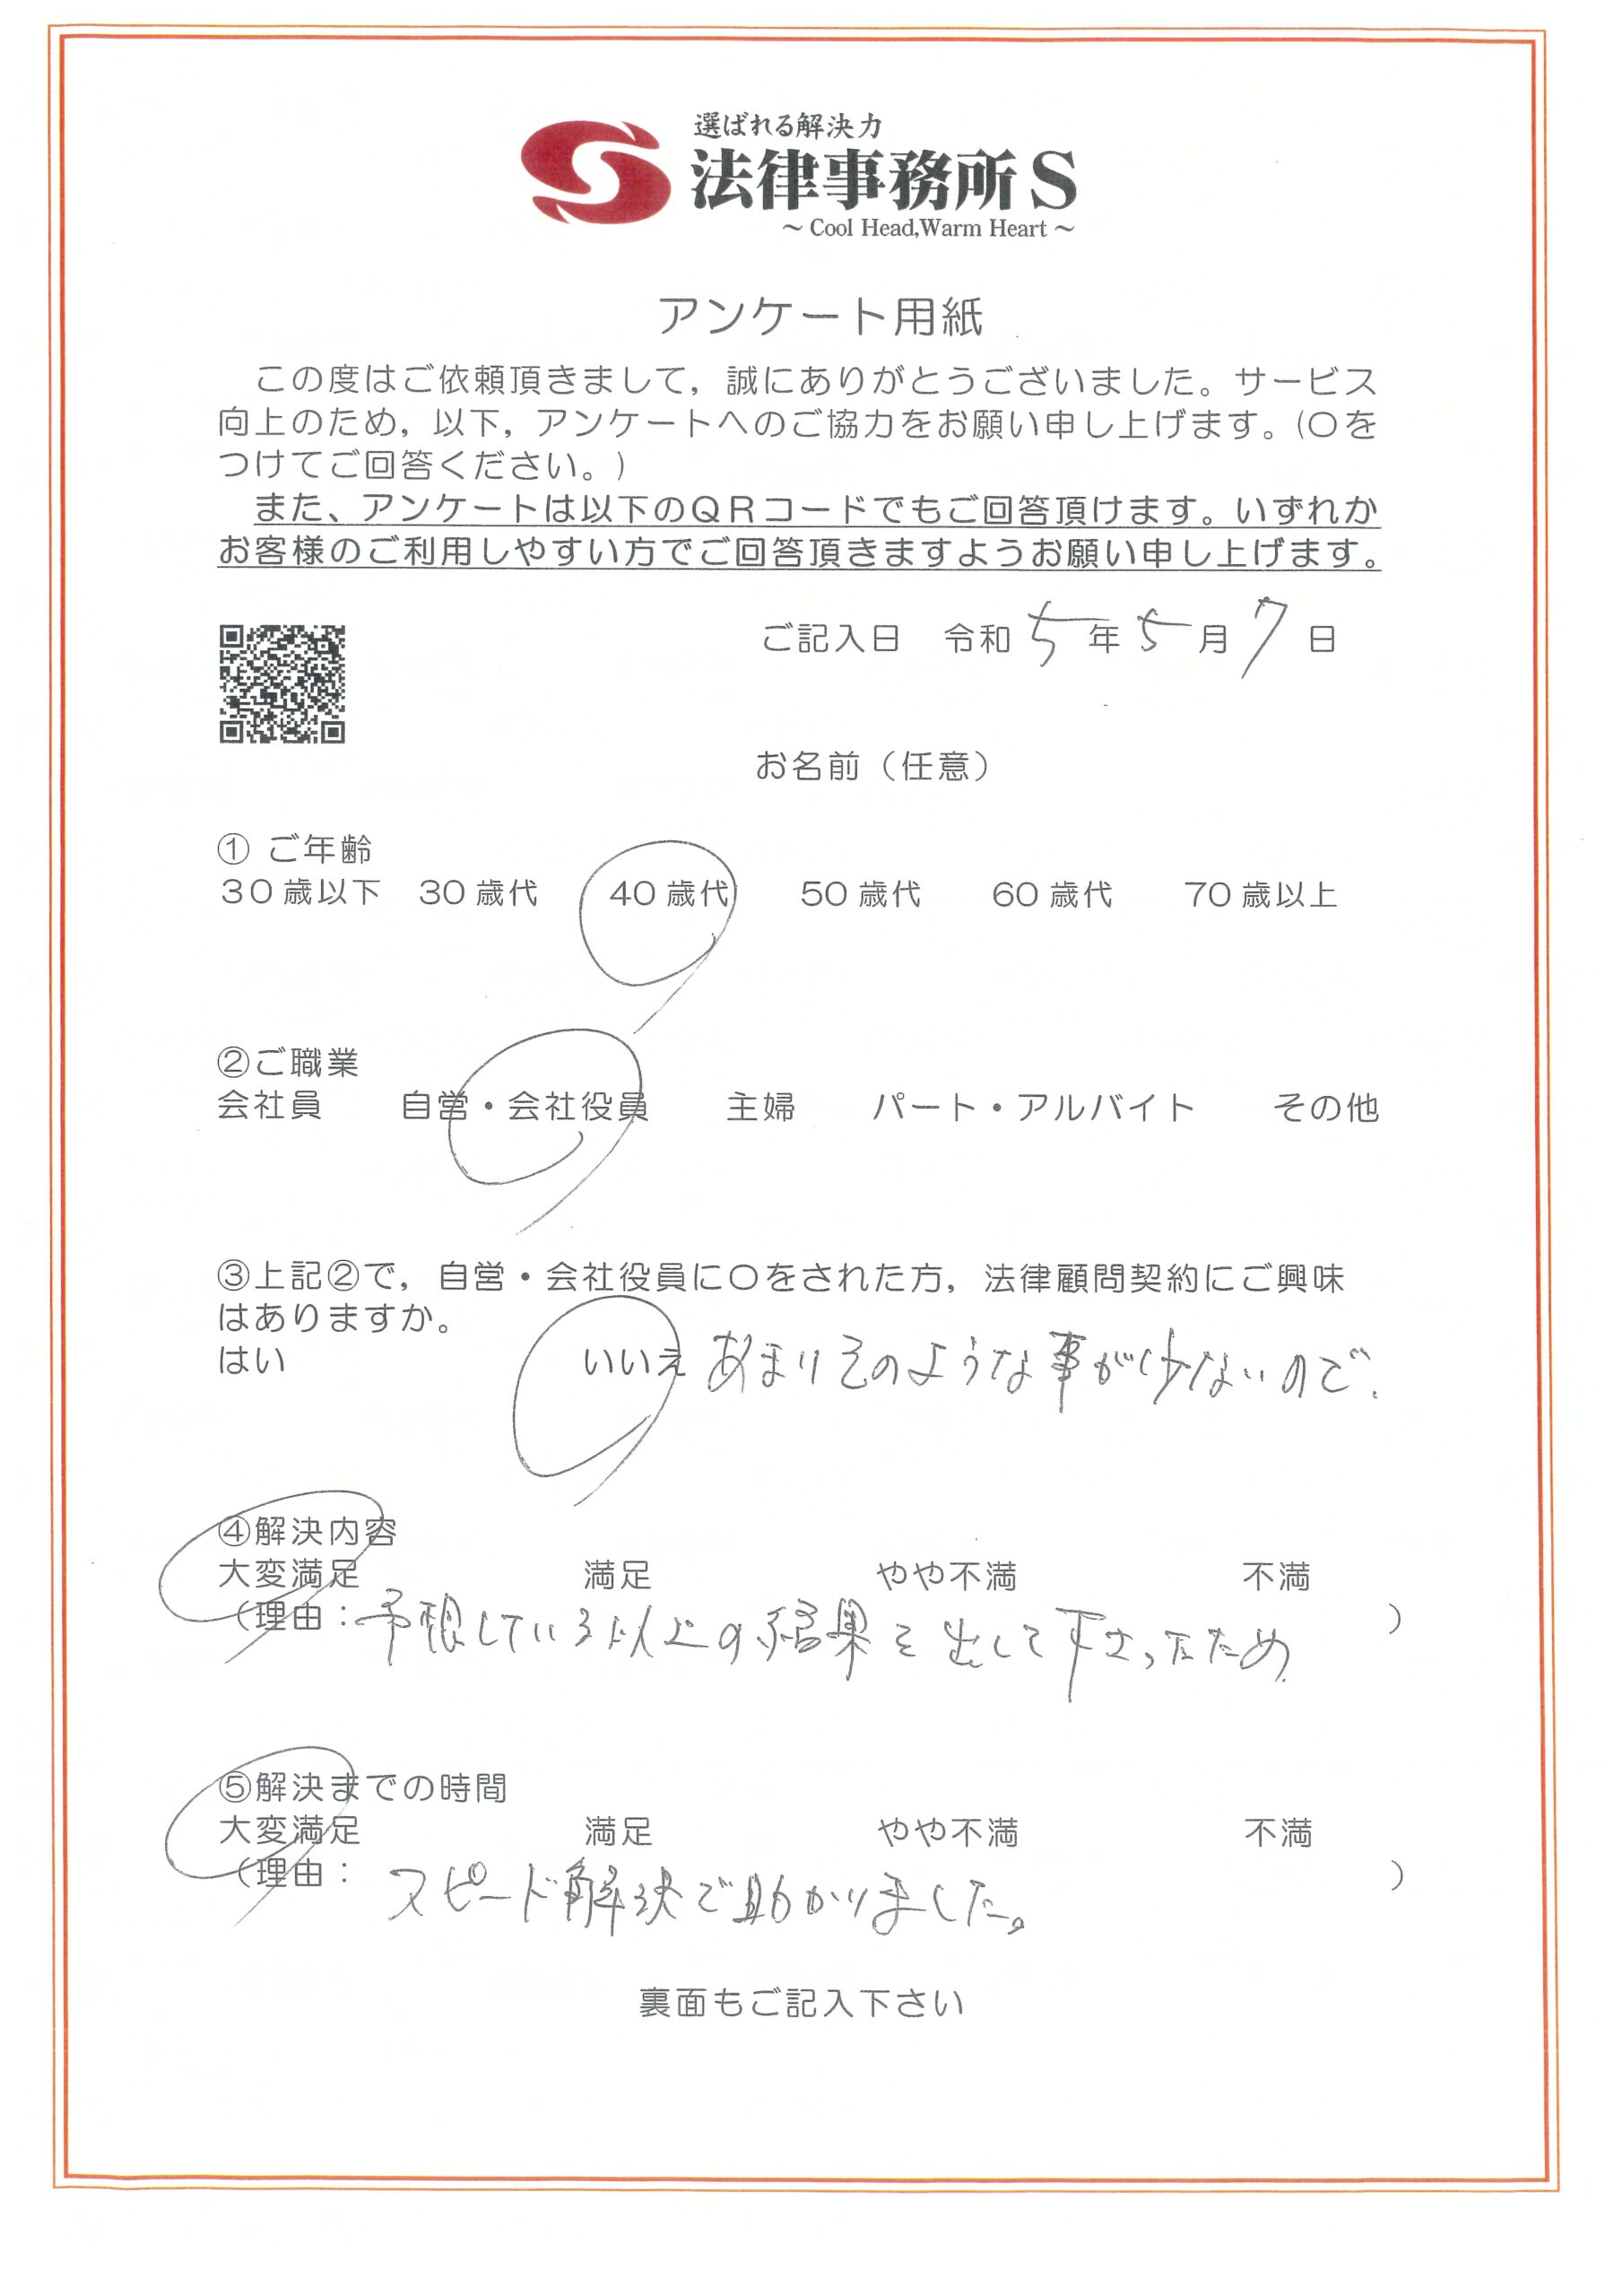 選ばれる解決力
法律事務所S
～Cool Head,Warm Heart～
アンケート用紙
この度はご依頼頂きまして，誠にありがとうございました。サービス
向上のため，以下，アンケートへのご協力をお願い申し上げます。（〇を
つけてご回答ください。）
また、アンケートは以下のＱＲコードでもご回答頂けます。いずれか
お客様のご利用しやすい方でご回答頂きますようお願い申し上げます。
ご記入日　令和 5 年 5 月 7 日
お名前（任意）
① ご年齢
３０歳以下　30歳代　40歳代　50歳代　60歳代　70歳以上
②ご職業
会社員　自営・会社役員　主婦　パート・アルバイト　その他
③上記②で，自営・会社役員に〇をされた方，法律顧問契約にご興味
はありますか。
はい　いいえ　あまりそのような事が少ないので.
④解決内容
大変満足　満足　やや不満　不満
（理由：予想している以上の結果を出して下さったため　）
⑤解決までの時間
大変満足　満足　やや不満　不満
（理由：スピード解決で助かりました。　）
裏面もご記入下さい